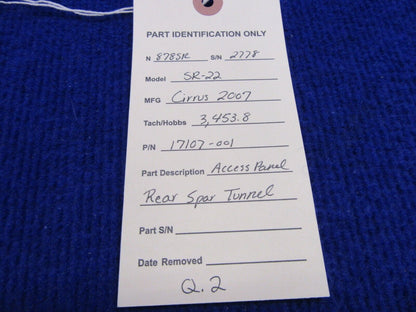 PART IDENTIFICATION ONLY
N 878SR S/N 2778
Model SR-22
MFG Cirrus 2007
Tach/Hobbs 3,453.8
P/N 17107-001
Part Description Access Panel
Rear Spar Tunnel
Part S/N
Date Removed
Q.2